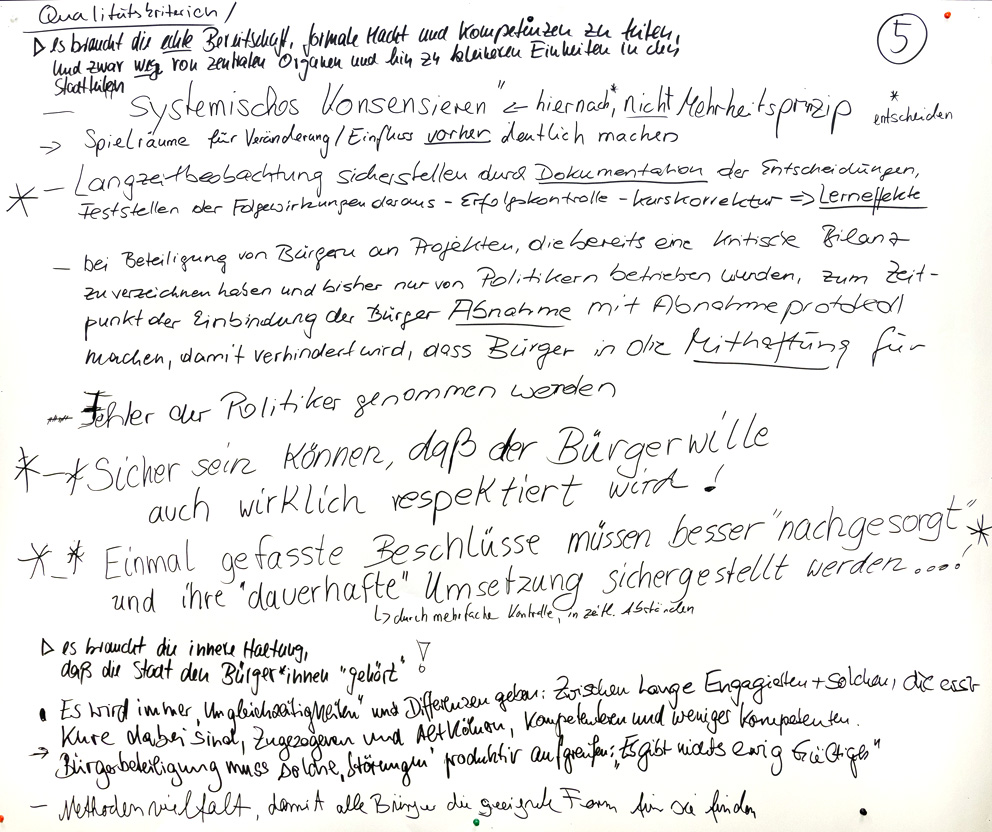 Qualitätskriterien /
5
▷ es braucht die echte Bereitschaft, formale Macht und Kompetenzen zu teilen,
und zwar weg von zentralen Organen und hin zu kleineren Einheiten in den
Stadtteilen
— Systemisches Konsensieren" ← hiernach*, nicht Mehrheitsprinzip * entscheiden
→ Spielräume für Veränderung/Einfluss vorher deutlich machen
* – Langzeitbeobachtung sicherstellen durch Dokumentation der Entscheidungen,
Feststellen der Folgewirkungen daraus - Erfolgskontrolle - Kurskorrektur ⇒ Lerneffekte
— bei Beteiligung von Bürgern an Projekten, die bereits eine kritische Bilanz
zu verzeichnen haben und bisher nur von Politikern betrieben wurden, zum Zeit-
punkt der Einbindung der Bürger Abnahme mit Abnahmeprotokoll
machen, damit verhindert wird, dass Bürger in die Mithaftung für
Fehler der Politiker genommen werden
*–* Sicher sein können, daß der Bürgerwille
auch wirklich respektiert wird!
*–* Einmal gefasste Beschlüsse müssen besser "nachgesorgt" *
und ihre "dauerhafte" Umsetzung sichergestellt werden....!
↳ durch mehrfache Kontrolle, in zeitl. Abständen
▷ es braucht die innere Haltung, !
daß die Stadt den Bürger*innen "gehört"
• Es wird immer „Ungleichzeitigkeiten" und Differenzen geben: Zwischen lange Engagierten + solchen, die erst
kurz dabei sind, Zugezogenen und Altkölnern, Kompetenten und weniger Kompetenten.
→ Bürgerbeteiligung muss solche „Störungen" produktiv aufgreifen: „Es gibt nichts ewig Gültiges"
— Methodenvielfalt, damit alle Bürger die geeignete Form für sie finden